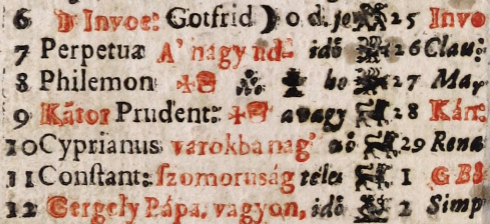 6 D Invoc: Gotfrid o d. je 25 Invo
7 Perpetua A' nagy ud- idő 26 Clau:
8 Philemon ho 27 Mar
9 Kátor Prudent: avagy 28 Kán:
10 Cyprianus varokba nag' eő 29 Rena
11 Constant: szomoruság telei 1 G B
12 Gergely Pápa, vagyon, idő 2 Simp